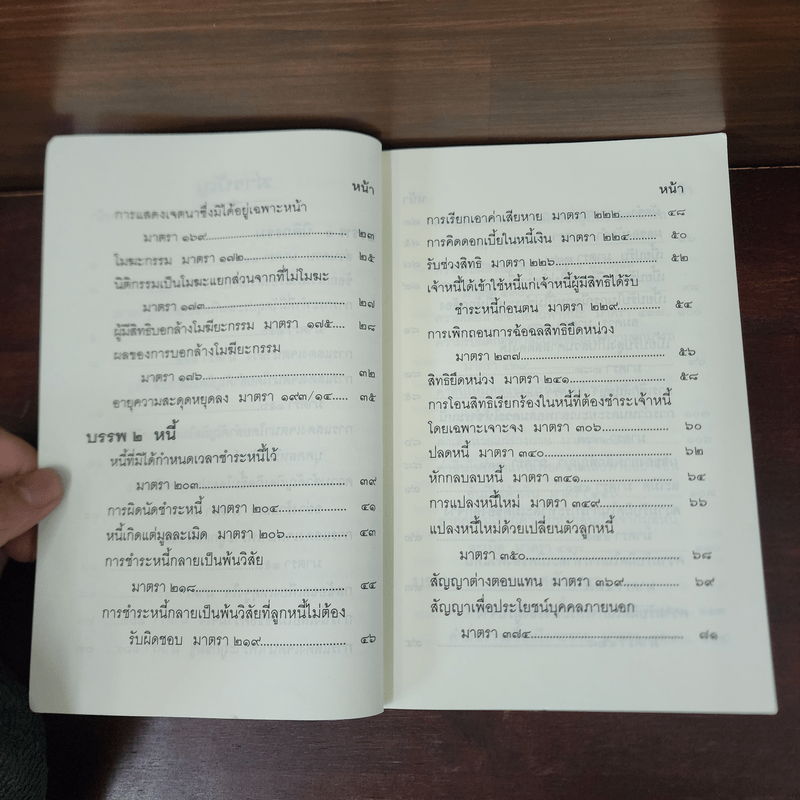 หน้า
การแสดงเจตนาซึ่งมิได้อยู่เฉพาะหน้า
มาตรา ๑๖๙.................................... ๒๓
โมฆะกรรม มาตรา ๑๗๒....................... ๒๕
นิติกรรมเป็นโมฆะแยกส่วนจากที่ไม่โมฆะ
มาตรา ๑๗๓.................................... ๒๗
ผู้มีสิทธิบอกล้างโมฆียะกรรม มาตรา ๑๗๕.... ๒๘
ผลของการบอกล้างโมฆียะกรรม
มาตรา ๑๗๖.................................... ๓๒
อายุความสะดุดหยุดลง มาตรา ๑๙๓/๑๔.... ๓๕
บรรพ ๒ หนี้
หนี้ที่มิได้กำหนดเวลาชำระหนี้ไว้
มาตรา ๒๐๓.................................... ๓๙
การผิดนัดชำระหนี้ มาตรา ๒๐๔............... ๔๑
หนี้เกิดแต่มูลละเมิด มาตรา ๒๐๖.............. ๔๓
การชำระหนี้กลายเป็นพ้นวิสัย
มาตรา ๒๑๘.................................... ๔๔
การชำระหนี้กลายเป็นพ้นวิสัยที่ลูกหนี้ไม่ต้อง
รับผิดชอบ มาตรา ๒๑๙....................... ๔๖
หน้า
การเรียกเอาค่าเสียหาย มาตรา ๒๒๒........... ๔๘
การคิดดอกเบี้ยในหนี้เงิน มาตรา ๒๒๔......... ๕๐
รับช่วงสิทธิ มาตรา ๒๒๖....................... ๕๒
เจ้าหนี้ได้เข้าใช้หนี้แก่เจ้าหนี้ผู้มีสิทธิได้รับ
ชำระหนี้ก่อนตน มาตรา ๒๒๙................. ๕๔
การเพิกถอนการฉ้อฉลสิทธิยึดหน่วง
มาตรา ๒๓๗.................................... ๕๖
สิทธิยึดหน่วง มาตรา ๒๔๑.................... ๕๘
การโอนสิทธิเรียกร้องในหนี้ที่ต้องชำระเจ้าหนี้
โดยเฉพาะเจาะจง มาตรา ๓๐๖............... ๖๐
ปลดหนี้ มาตรา ๓๔๐.......................... ๖๒
หักกลบลบหนี้ มาตรา ๓๔๑.................... ๖๔
การแปลงหนี้ใหม่ มาตรา ๓๔๙................ ๖๖
แปลงหนี้ใหม่ด้วยเปลี่ยนตัวลูกหนี้
มาตรา ๓๕๐.................................... ๖๘
สัญญาต่างตอบแทน มาตรา ๓๖๙............. ๖๙
สัญญาเพื่อประโยชน์บุคคลภายนอก
มาตรา ๓๗๔.................................... ๗๑